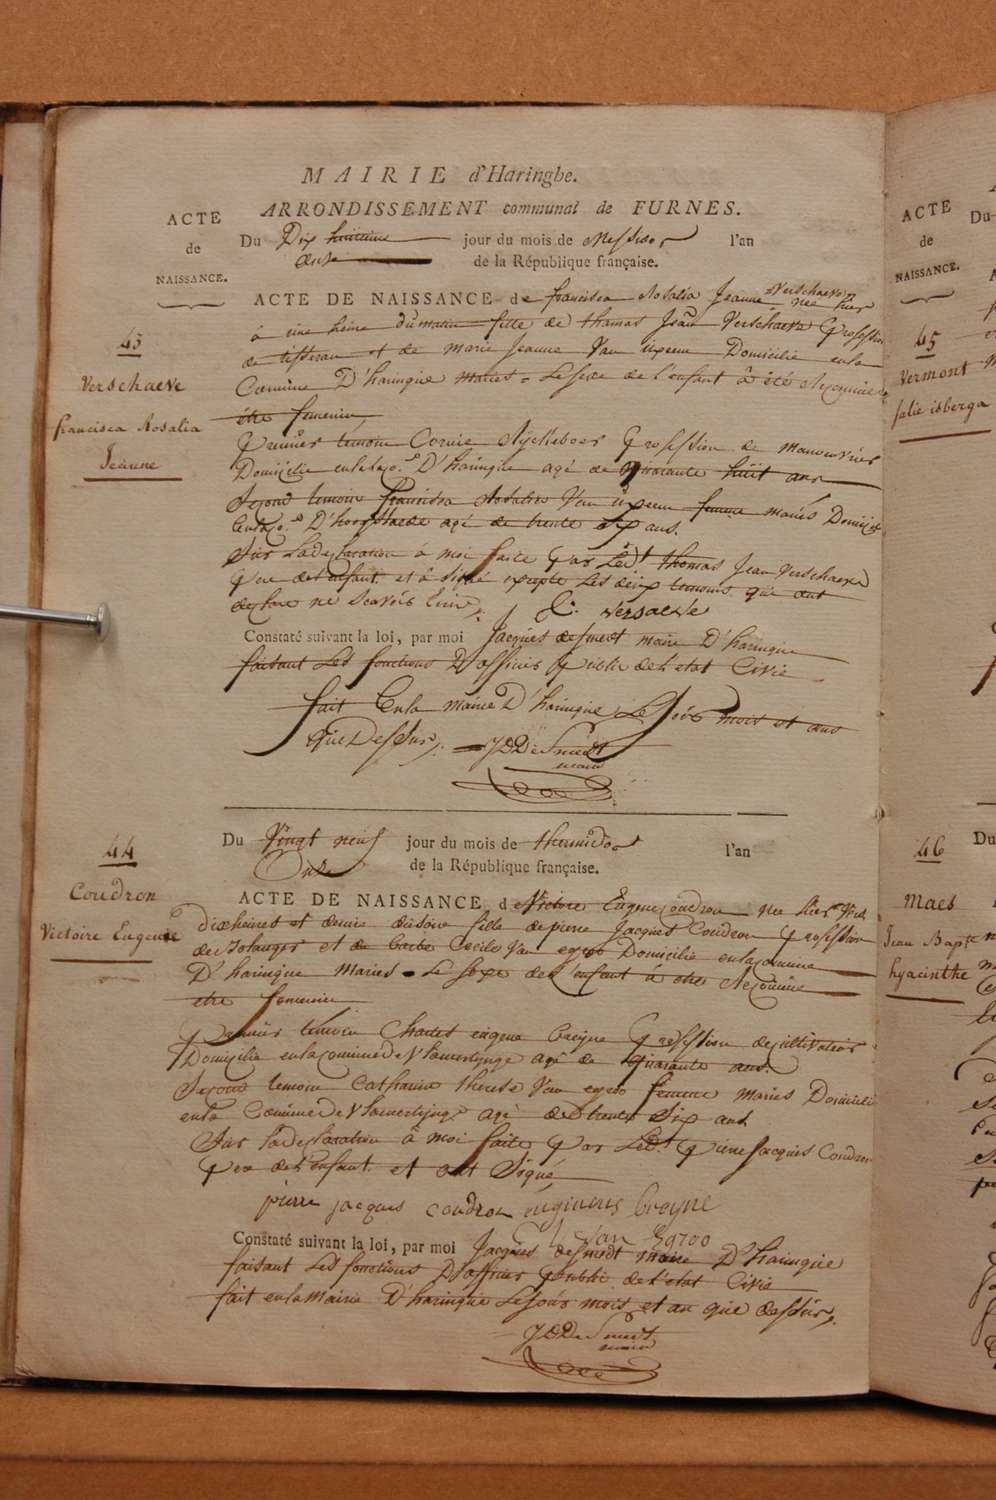 MAIRIE d'Haringhe.
ARRONDISSEMENT communal de FURNES.
ACTE
de
NAISSANCE.
Du Dix huitieme jour du mois de Messidor l'an
onze de la République française.
43
Verschaeve
francisca Rosalia
Jeanne
ACTE DE NAISSANCE de francisca Rosalia Jeanne Verschaeve née hier
à une heure du matin fille de thomas Jean Verschaeve profession
de tisseran et de marie Jeanne Van uxem Domicilié en la
Commune D'haringue mariés - Le sexe de l'enfant à été Reconnue
être femenin
premier temoin Cornie Ryckeboer profession de manouvrier
Domicilié en D'haringue agé de quarante huit ans
Second temoin francisca Rosalia Van uxem femme mariés
D'hoogstaede agé de trente six ans.
Sur La declaration à moi faite par Ledt thomas Jean Verschaeve
pere de L'enfant. et à signé excepté Les deux temoins qui ont
declaré ne scavoir Ecrire
versaeve
Constaté suivant la loi, par moi Jacques desmedt maire D'haringue
faisant Les fonctions D'officier public de L'etat Civie
fait En la mairie D'haringue Le Jour mois et ans
que Dessus. JD De Smedt
maire
44
Coudron
Victoire Eugenie
Du Vingt neuf jour du mois de thermidor l'an
Onze de la République française.
ACTE DE NAISSANCE de Victoire Eugene Coudron née hier
dix heures et demie du soir fille de pierre Jacques Coudron profession
de Bolanger et de Cecile Van eygoo Domicilié en la commune
D'haringue Mariés - Le sexe de L'enfent à eté Reconnue
etre femenin
premier temoin Charles eugene breyne profession de cultivateur
Domicilié en la commune de Vlamertynge agé de quarante ans.
Second temoin Catharine therese Van eygoo femme mariés Domicilié
en la Commune de Vlamertynge agé de trente Six ans
Sur la declaration à moi faite par Ledt pierre Jacques Coudron
pere de L'enfant. et ont Signé
pierre jacques coudron eugenius breyne
van
Constaté suivant la loi, par moi Jacques deSmedt maire D'haringue
faisant Les fonctions D'officier publié de L'etat Civie
fait en la Mairie D'haringue Le Jour mois et an que dessus.
JD De Smedt
maire
ACTE
de
NAISSANCE.
Du
45
Vermont
Julie isberga
46
Maes
Jean Bapte
hyacinthe
Du